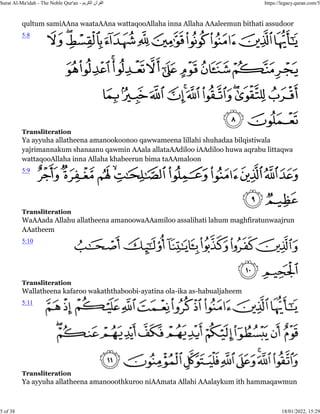 Surat Al-Ma'idah - The Noble Qur'an - القرآن الكريم
https://legacy.quran.com/5
qultum samiAAna waataAAna wattaqooAllaha inna Allaha AAaleemun bithati assudoor
5:8
يَا أَيُّهَا الَّذِينَ آمَنُوا كُونُوا قَوَّامِينَ لِلَّهِ شُهَدَاءَ بِالْقِسْطِ ۖ وَلَا
يَجْرِمَنَّكُمْ شَنَآنُ قَوْمٍ عَلَىٰ أَلَّا تَعْدِلُوا ۚ اعْدِلُوا هُوَ
أَقْرَبُ لِلتَّقْوَىٰ ۖ وَاتَّقُوا اللَّهَ ۚ إِنَّ اللَّهَ خَبِيرٌ بِمَا
تَعْمَلُونَ ٨
Transliteration
Ya ayyuha allatheena amanookoonoo qawwameena lillahi shuhadaa bilqistiwala
yajrimannakum shanaanu qawmin AAala allataAAdiloo iAAdiloo huwa aqrabu littaqwa
wattaqooAllaha inna Allaha khabeerun bima taAAmaloon
5:9
وَعَدَ اللَّهُ الَّذِينَ آمَنُوا وَعَمِلُوا الصَّالِحَاتِ ۙ لَهُمْ مَغْفِرَةٌ وَأَجْرٌ
عَظِيمٌ ٩
Transliteration
WaAAada Allahu allatheena amanoowaAAamiloo assalihati lahum maghfiratunwaajrun
AAatheem
5:10
وَالَّذِينَ كَفَرُوا وَكَذَّبُوا بِآيَاتِنَا أُولَٰئِكَ أَصْحَابُ
الْجَحِيمِ ١٠
Transliteration
Wallatheena kafaroo wakaththaboobi-ayatina ola-ika as-habualjaheem
5:11
يَا أَيُّهَا الَّذِينَ آمَنُوا اذْكُرُوا نِعْمَتَ اللَّهِ عَلَيْكُمْ إِذْ هَمَّ
قَوْمٌ أَنْ يَبْسُطُوا إِلَيْكُمْ أَيْدِيَهُمْ فَكَفَّ أَيْدِيَهُمْ عَنْكُمْ ۖ
وَاتَّقُوا اللَّهَ ۚ وَعَلَى اللَّهِ فَلْيَتَوَكَّلِ الْمُؤْمِنُونَ ١١
Transliteration
Ya ayyuha allatheena amanoothkuroo niAAmata Allahi AAalaykum ith hammaqawmun
5 of 38
18/01/2022, 15:29